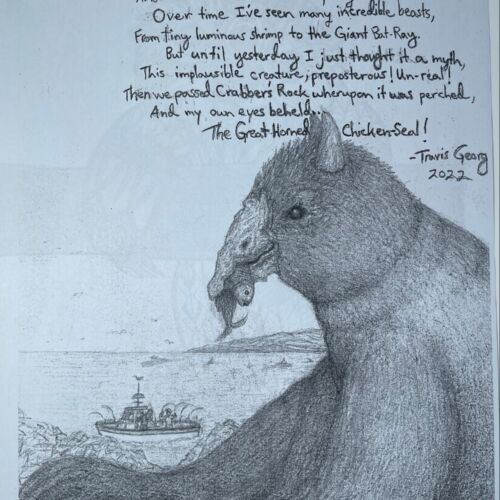 Over time I've seen many incredible beasts,
From tiny luminous shrimp to the Giant Bat-Ray.
But until yesterday I just thought it a myth,
This implausible creature, preposterous! Un-real!
Then we passed Crabbers Rock wherupon it was perched,
And my own eyes beheld...
The Great Horned Chicken-Seal!
-Travis Georg
2022